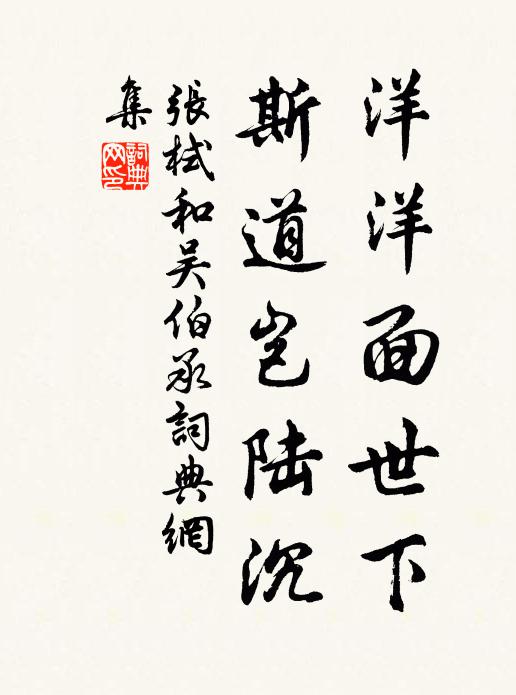 洋洋面世下
斯道岂陆沉
張栻和吴伯承詞典網
集
詞典
网印